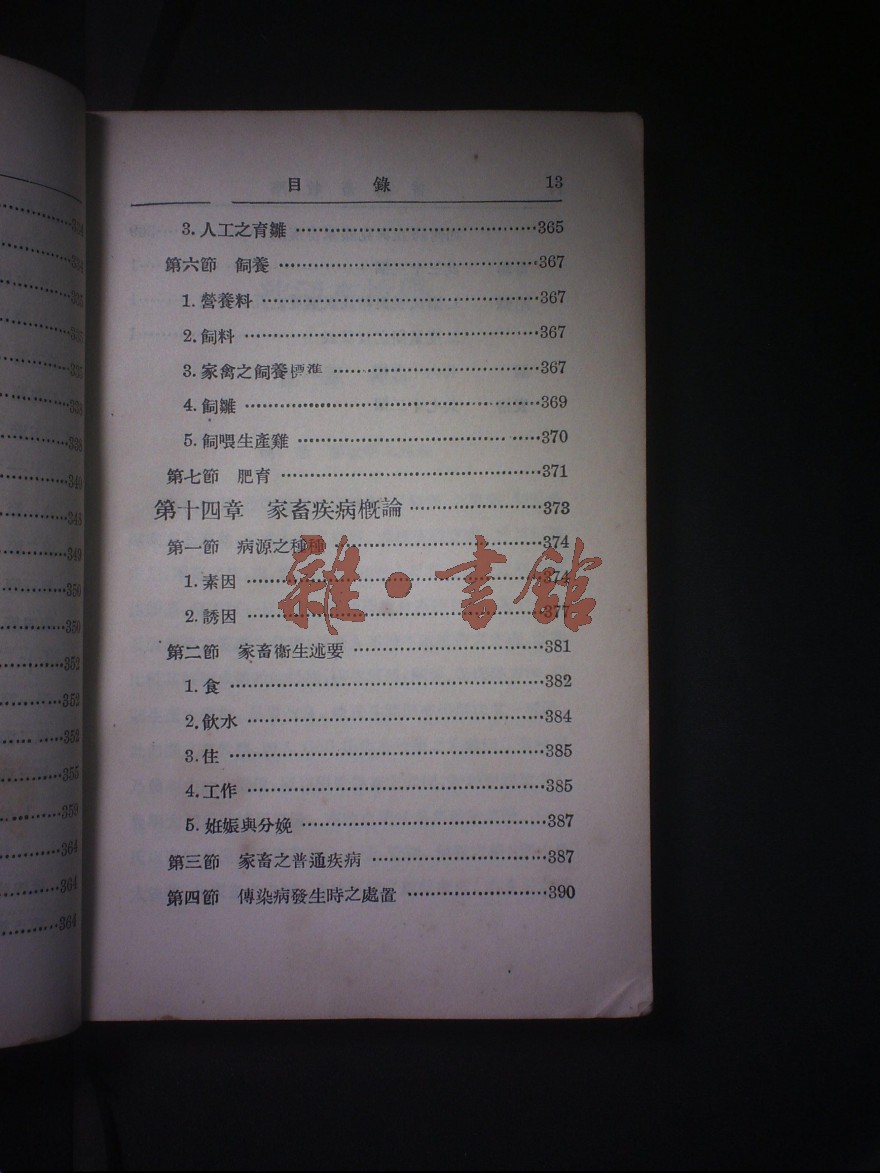 目 錄 13
3. 人工之育雛 ……365
第六節 飼養 ……367
1. 營養料 ……367
2. 飼料 ……367
3. 家禽之飼養標準 ……367
4. 飼雛 ……369
5. 飼喂生產雞 ……370
第七節 肥育 ……371
第十四章 家畜疾病概論 ……373
第一節 病源之種種 ……374
1. 素因 ……374
2. 誘因 ……377
第二節 家畜衞生述要 ……381
1. 食 ……382
2. 飲水 ……384
3. 住 ……385
4. 工作 ……385
5. 姙娠與分娩 ……387
第三節 家畜之普通疾病 ……387
第四節 傳染病發生時之處置 ……390
雜·書館
334
334
335
335
337
338
339
340
343
349
350
350
352
352
353
355
359
364
364
364